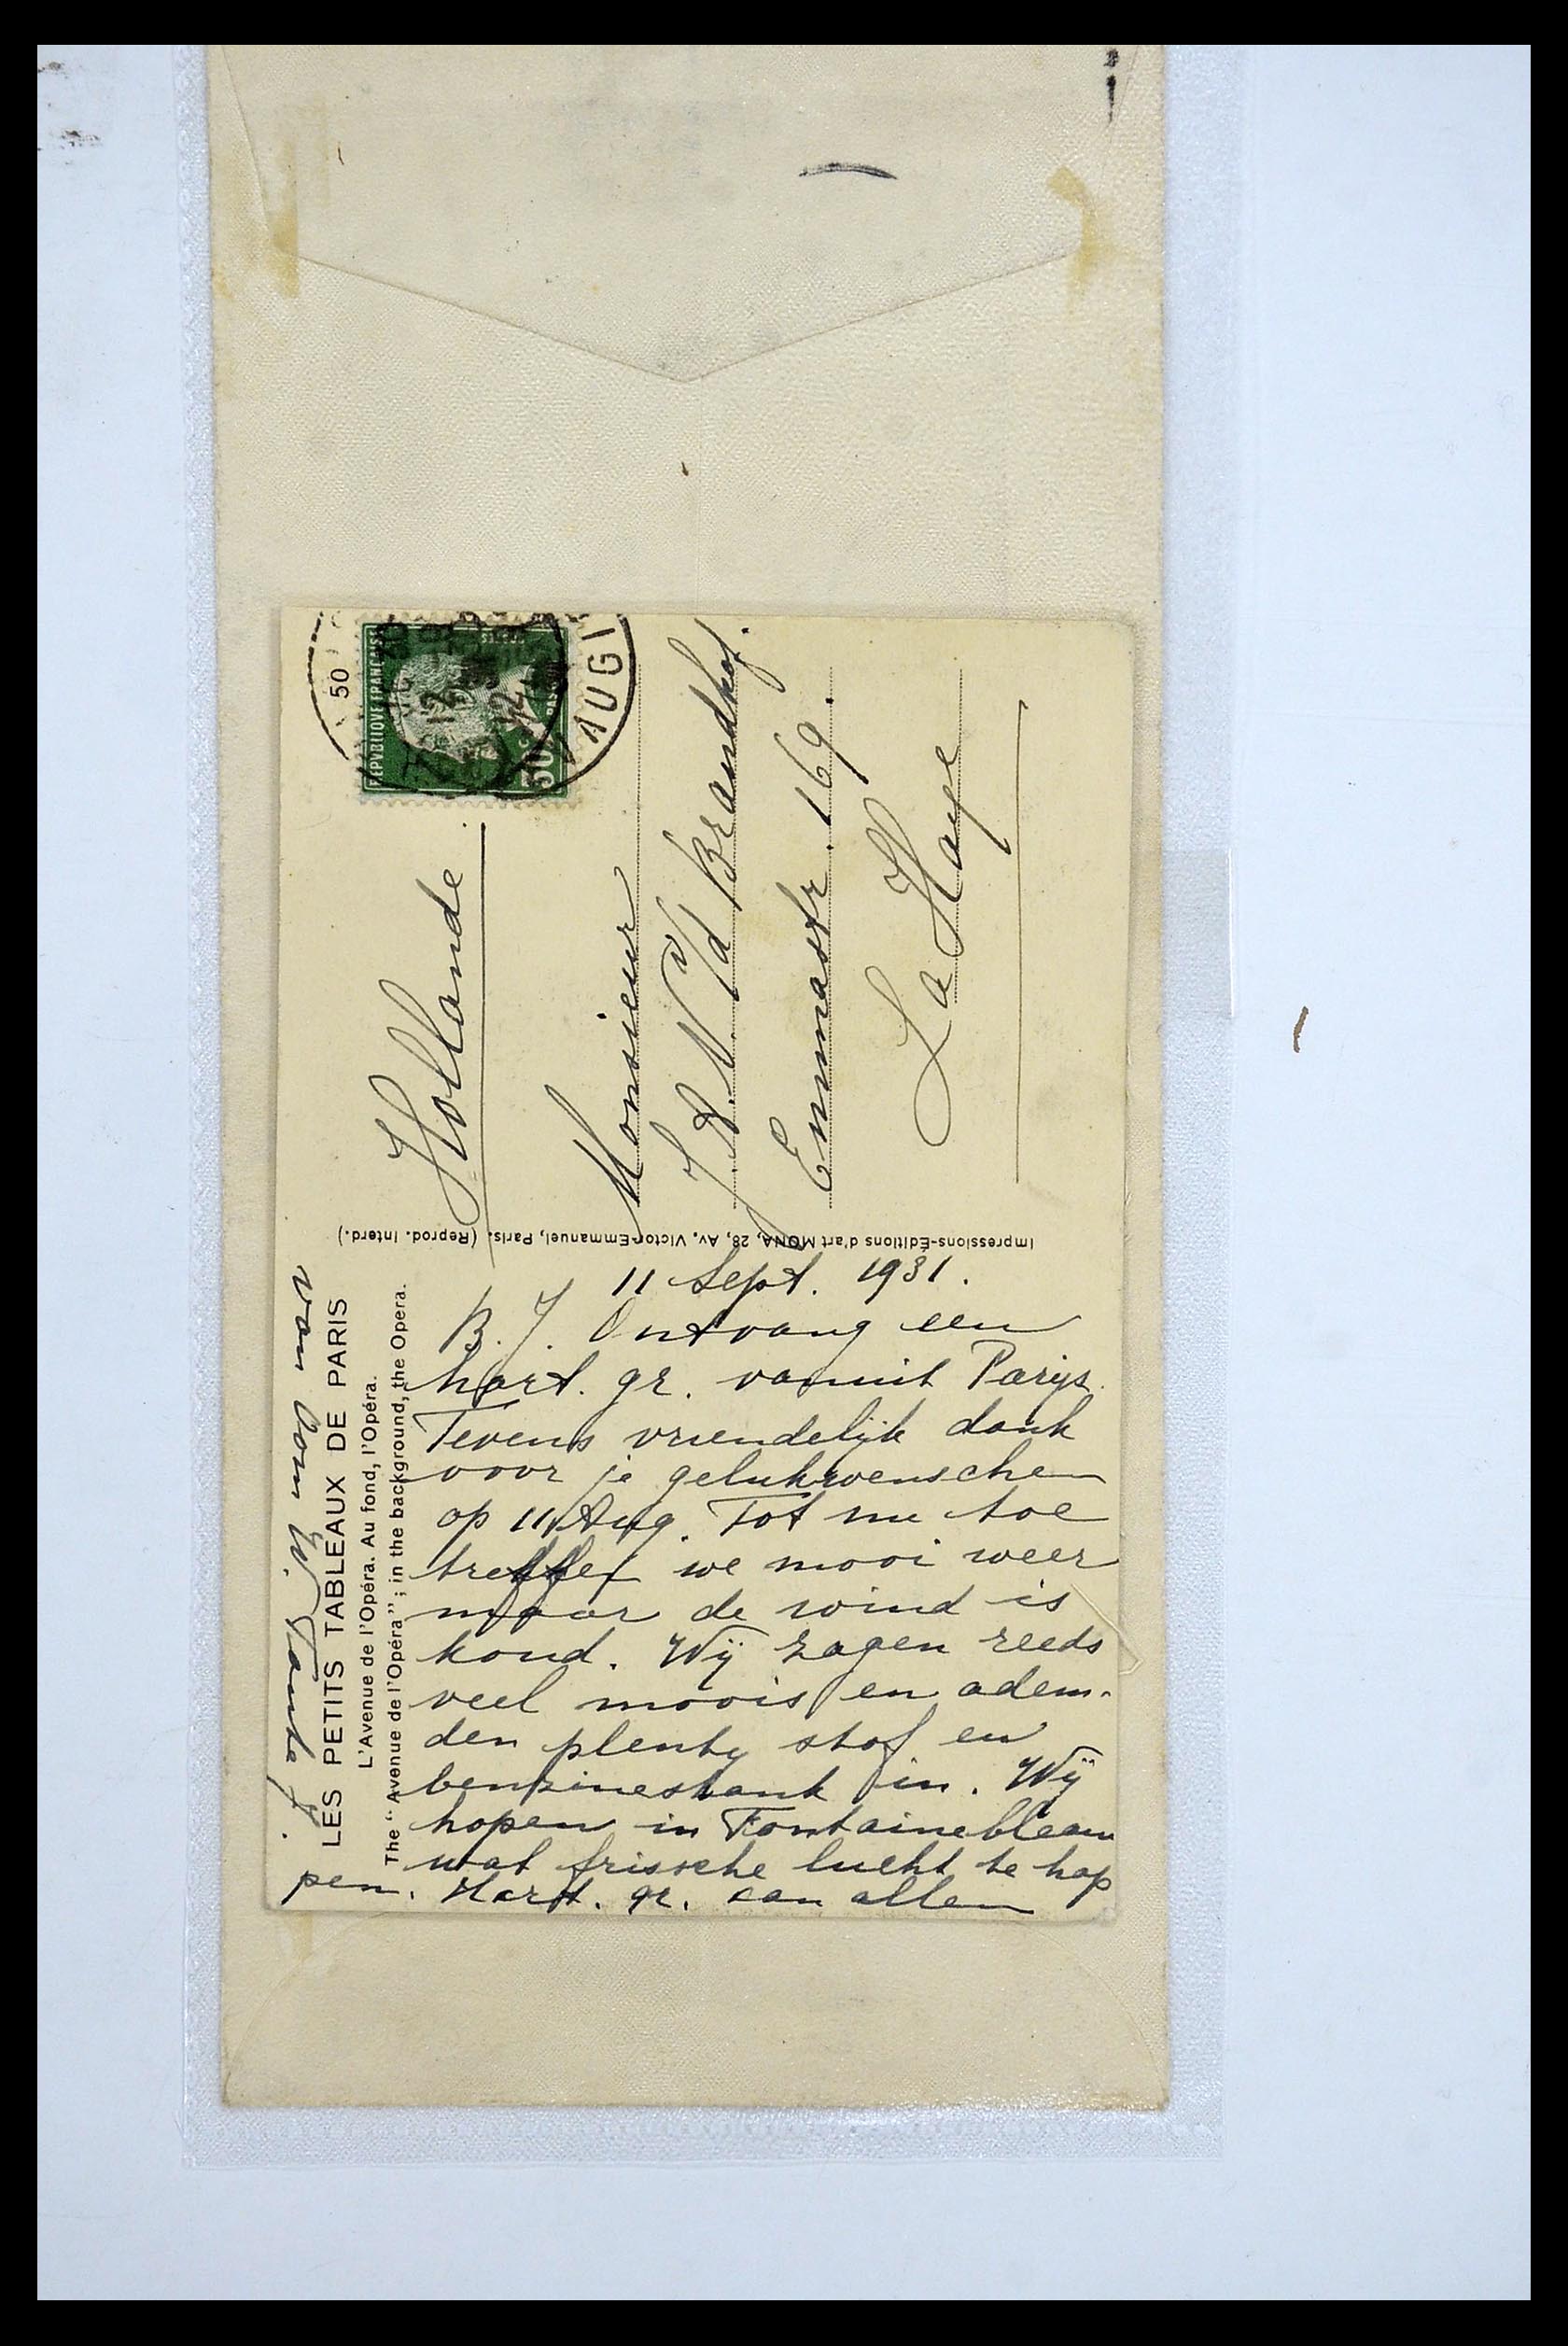 11 Sept. 1931.
B. J. Ontvang een
hart. gr. vanuit Parijs.
Tevens vriendelijk dank
voor je gelukwenschen
op 11 Aug. Tot nu toe
treffen we mooi weer
maar de wind is
koud. Wij zagen reeds
veel moois en adem-
den plenty stof en
benzinestank in. Wij
hopen in Fontainebleau
wat frissche lucht te hap
pen. Hart. gr. aan allen
van Oom W. Tante J.
LES PETITS TABLEAUX DE PARIS
L'Avenue de l'Opéra. Au fond, l'Opéra.
The "Avenue de l'Opéra"; in the background, the Opera.
Impressions-Éditions d'art MONA, 28, Av. Victor-Emmanuel, Paris. (Reprod. Interd.)
Hollande
Monsieur
J. A. N. v/d Brandhof.
Emmastr. 169.
La Haye
REPVBLIQVE FRANÇAISE
POSTES
50c
50
AUGI